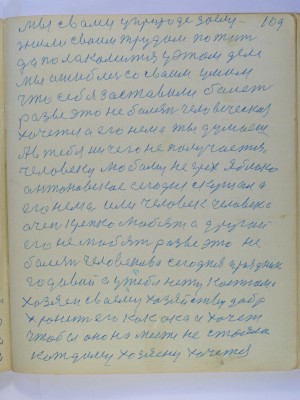 мы с вами у природе заслу- 109
жили своим трудом пожит
да полакомится у этом деле
мы ошиблися своим умом
что себя заставили болет
разве это не болезн человеческая
хочется а его нема ты думаеш
а у тебя ничего не получается
человеку любому не грех яблоко
антоновское сегодня скушал а
его нема или человек человека
очен крепко любят а другой
его не любят разве это не
болезн человеческа сегодня праздник
годовый а у тебя нету костюма
хозяен своему хозяйству добр
хронит его как ока и хочет
чтобы оно на месте не стояла
каждому хозяену хочется